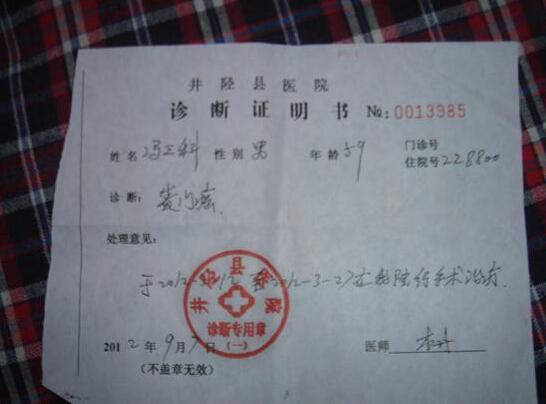 井陉县医院
诊断证明书 №:0013985
姓名 冯卫科 性别 男 年龄 59 门诊号
住院号 228800
诊断: 贲门癌
处理意见:
于2012-3-12至2012-3-27在我院行手术治疗.
井陉县医院
诊断专用章
(一)
2012年9月7日 医师
(不盖章无效)